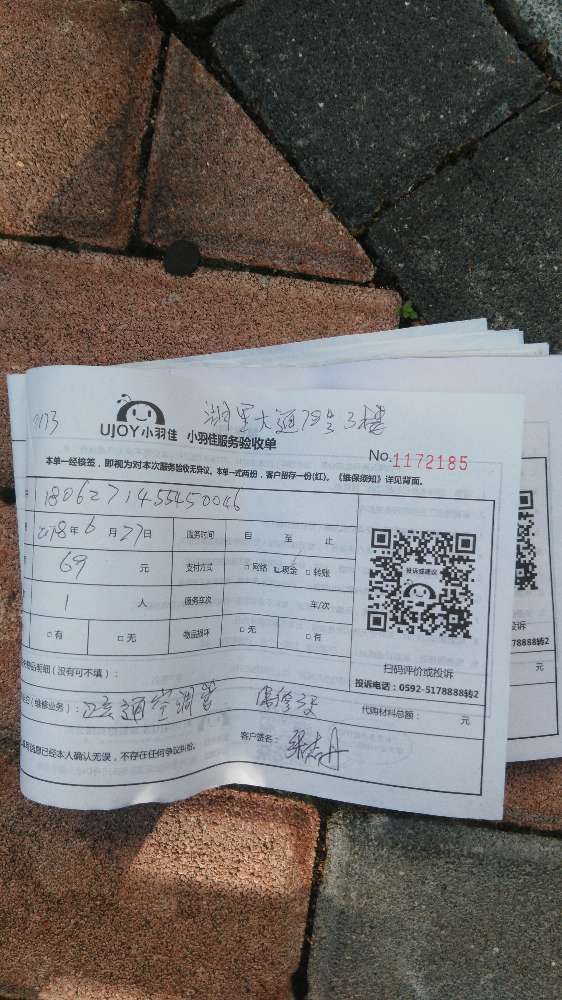 UJOY小羽佳 小羽佳服务验收单
No.1172185
本单一经核签，即视为对本次服务验收无异议。本单一式两份，客户留存一份(红)。《维保须知》详见背面。
1806271455450046
2018年6月27日 服务时间 自 至 止
69 元 支付方式 □网络 现金 □转账
1 人 服务车次 车/次
□有 □无 物品损坏 □无 □有
投诉或建议
扫码评价或投诉
投诉电话：0592-5178888转2
物品明细（没有可不填）：
（维修业务）：
代购材料总额： 元
信息已经本人确认无误，不存在任何争议纠纷。 客户签名：
78888转2
元